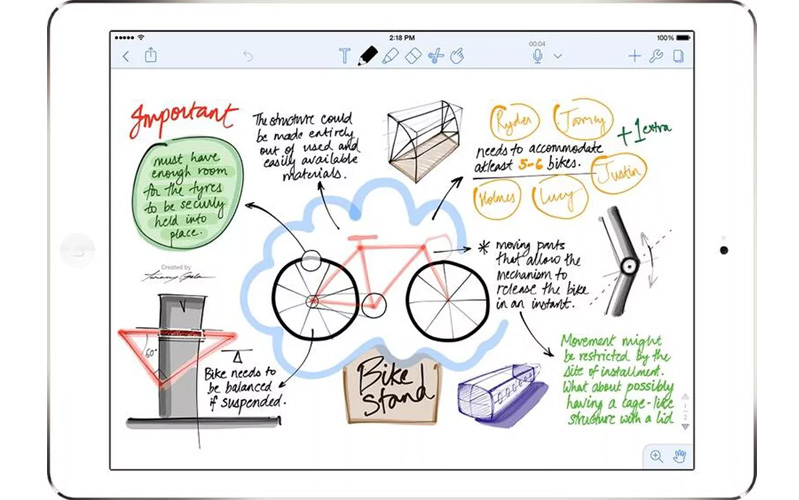 2:18 PM
100%
T
00:04
Important
must have
enough room
for the tyres
to be securly
held into
place.
The structure could
be made entirely
out of used and
easily available
materials.
Ryder
Tammy
+1 extra
needs to accommodate
atleast 5-6 bikes.
Justin
Holmes
Lucy
* moving parts
that allow the
mechanism to
release the bike
in an instant.
Created by
60°
Bike needs to
be balanced
if suspended.
Bike
Stand
Movement might
be restricted by the
site of installment.
What about possibly
having a cage-like
structure with a lid